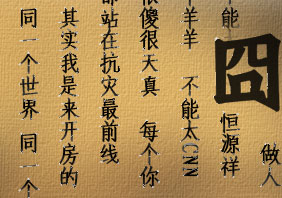 做人
囧
不能 恒源祥
羊羊 不能太CNN
很傻很天真 每个你
站在抗灾最前线
其实我是来开房的
同一个世界 同一个